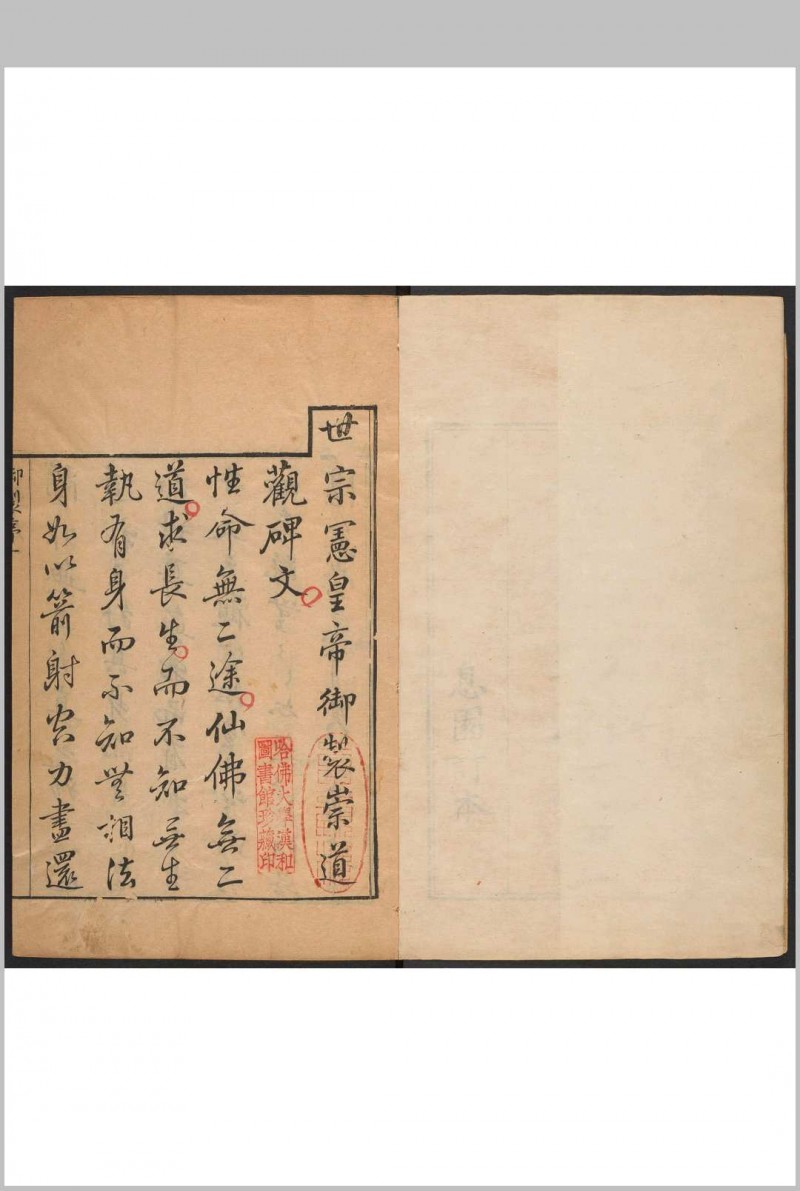 世宗憲皇帝御製崇道
觀碑文
性命無二途仙佛無二
道求長生而不知無生
執有身而不知無相法
身如以箭射空力盡還
御製序一
哈佛大學漢和
圖書館珍藏印